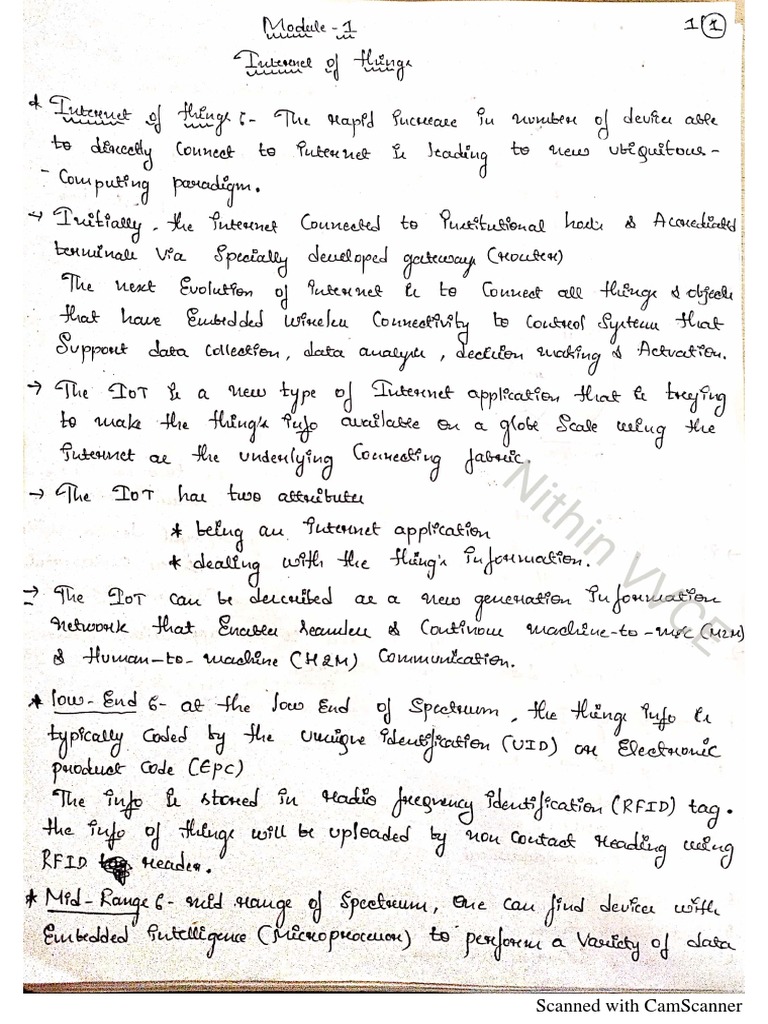 Module-1
1 1
Internet of things
* Internet of things :- The rapid increase in number of device able
to directly connect to internet is leading to new ubiquitous-
-Computing paradigm.
→ Initially, the internet Connected to institutional hosts & Accrediated
terminals via Specially developed gateways (router)
The next Evolution of internet is to Connect all things & objects
that have Embedded wireless Connectivity to Control System that
Support data Collection, data analysis, decision making & Actuation.
→ The IoT is a new type of Internet application that is trying
to make the thing's info available on a globe Scale using the
internet as the underlying Connecting fabric.
→ The IoT has two attributes
* being an internet application
* dealing with the thing's information.
→ The IoT can be described as a new generation information
network that Enables seamless & Continous machine-to-m/c (M2M)
& Human-to-machine (H2M) Communication.
* low-End :- at the low End of Spectrum, the things info is
typically coded by the unique identification (UID) or Electronic
product Code (EPC)
The info is stored in radio frequency identification (RFID) tag.
the info of things will be uploaded by non contact reading using
RFID reader.
* Mid-Range :- mid range of Spectrum, one can find device with
Embedded intelligence (Microprocessor) to perform a Variety of data
Nithin VVCE
Scanned with CamScanner